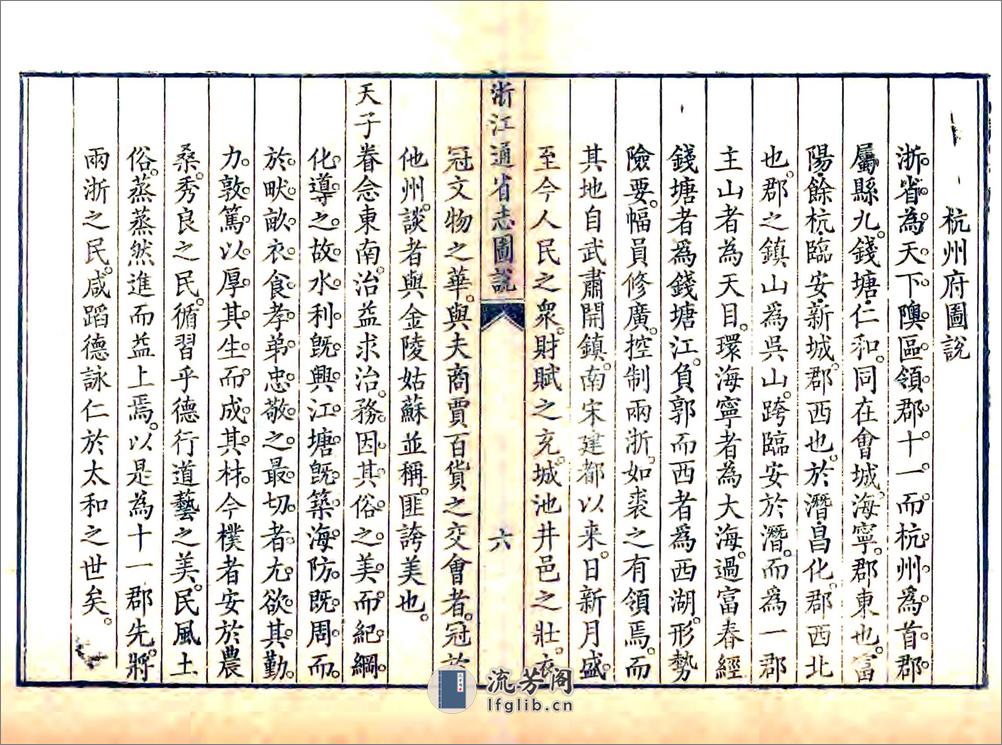 杭州府圖說
浙省為天下隩區領郡十一而杭州為首郡
屬縣九錢塘仁和同在會城海寧郡東也富
陽餘杭臨安新城郡西也於潛昌化郡西北
也郡之鎮山為吳山跨臨安於潛而為一郡
主山者為天目環海寧者為大海過富春經
錢塘者爲錢塘江負郭而西者爲西湖形勢
險要幅員修廣控制兩浙如裘之有領焉而
其地自武肅開鎮南宋建都以来日新月盛
至今人民之衆財賦之充城池井邑之壯衣
浙江通省志圖說
六
冠文物之華與夫商賈百貨之交會者冠於
他州談者與金陵姑蘇並稱匪誇美也
天子眷念東南治益求治務因其俗之美而紀綱
化導之故水利旣興江塘旣築海防既周而
於畎畝衣食孝弟忠敬之最切者尤欲其勤
力敦篤以厚其生而成其材今樸者安於農
桑秀良之民循習乎德行道藝之美民風土
俗蒸蒸然進而益上焉以是為十一郡先將
兩浙之民咸蹈德詠仁於太和之世矣
流芳阁
lfglib.cn